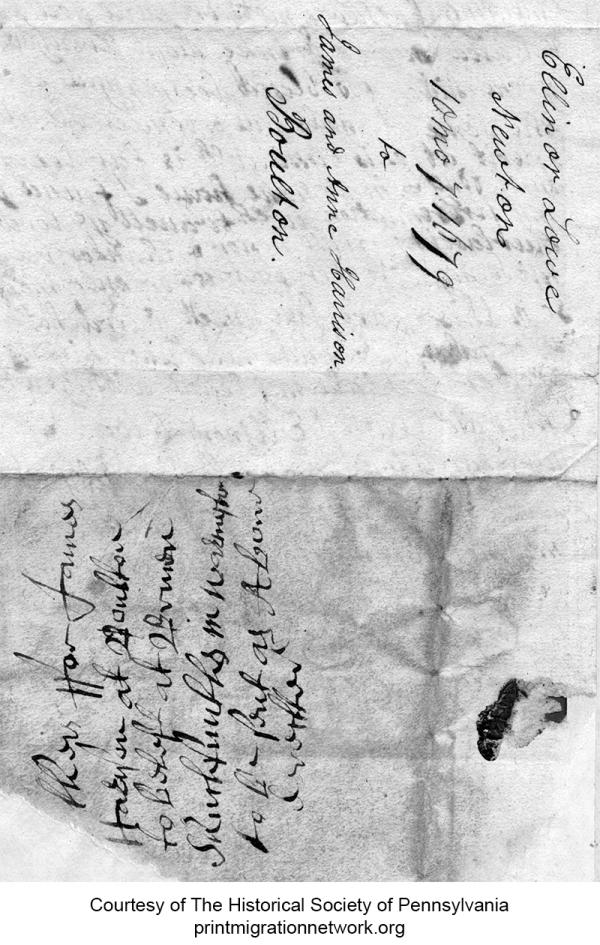 Ellinor Lowe
Newton
10mo 7 1679
to
James and Anne Harrison.
Boulton.
thes For James
Harison at Boulton
to be left at
in warington
to be sent as Above
Courtesy of The Historical Society of Pennsylvania
printmigrationnetwork.org